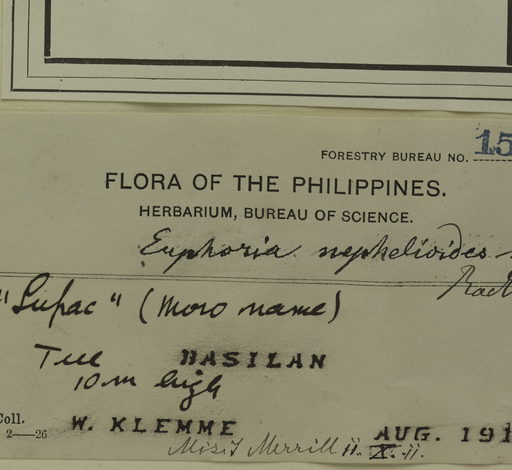 FORESTRY BUREAU NO. 15
FLORA OF THE PHILIPPINES.
HERBARIUM, BUREAU OF SCIENCE.
Euphoria nephelioides
Radl
"Lupac" (Moro name)
Tree BASILAN
10 m high
Coll. W. KLEMME AUG. 191
2—26
Misit Merrill II. X. II.